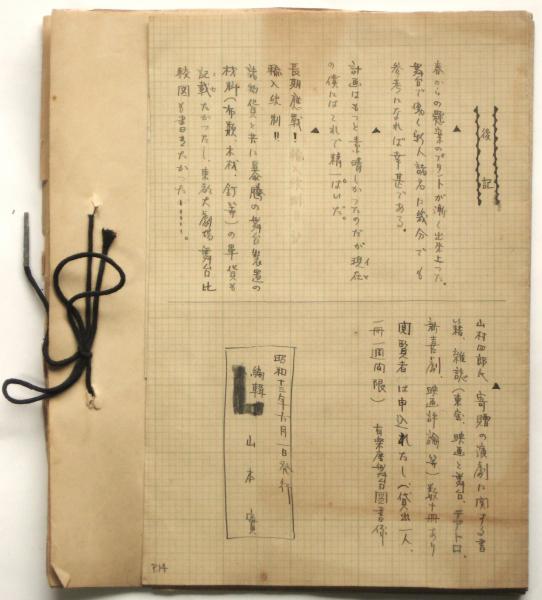 後記
▲
春からの懸案のプリントが漸く出来上った。
舞台で働く新人諸君に幾分でも
参考になれば幸甚である。
▲
計画はもっと素晴しかったのだが現在
の僕にはこれで精一ぱいだ。
▲
長期応戦!
輸入統制!!
諸物貨と共に暴騰の舞台装置の
材料(布, 敷, 木材, 釘 等)の単貨も
記載したかったし、東京大劇場舞台比
較図も書きたかった……。
▲
山村四郎氏寄贈の演劇に関する書
籍、雑誌(東宝、映画と舞台、テアトロ、
新喜劇、映画評論等)数十冊あり
閲覧者は申込れたし(貸出一人、
一冊一週間限) 有楽座舞台図書係
昭和十三年六月一日発行
編輯 山本
P.14